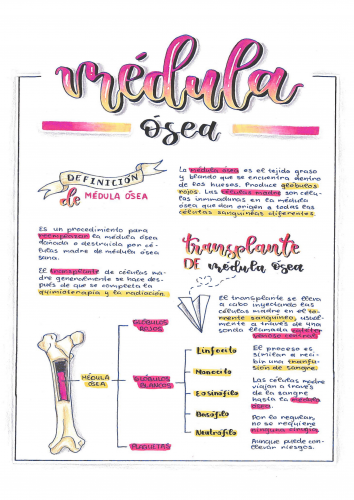 médula
ósea
DEFINICIÓN
de MÉDULA ÓSEA
La médula ósea es el tejido graso
y blando que se encuentra dentro
de los huesos. Produce glóbulos
rojos. Las células madre son célu-
las inmaduras en la médula
ósea que dan origen a todas las
células sanguíneas diferentes.
Es un procedimiento para
reemplazar la médula ósea
dañada o destruida por cé-
lulas madre de médula ósea
sana.
El transplante de células ma-
dre generalmente se hace des-
pués de que se completa la
quimioterapia y la radiación.
transplante
DE médula ósea
El transplante se lleva
a cabo inyectando las
células madre en el to-
rrente sanguíneo, usual-
mente a través de una
sonda llamada catéter
venoso central.
El proceso es
similar a reci-
bir una tranfu-
sión de sangre.
Las células madre
viajan a través
de la sangre
hasta la médula
ósea.
Por lo regular,
no se requiere
ninguna cirugía.
Aunque puede con-
llevar riesgos.
MÉDULA
ÓSEA
GLÓBULOS
ROJOS
GLÓBULOS
BLANCOS
PLAQUETAS
Linfocito
Monocito
Eosinófilo
Basófilo
Neutrófilo